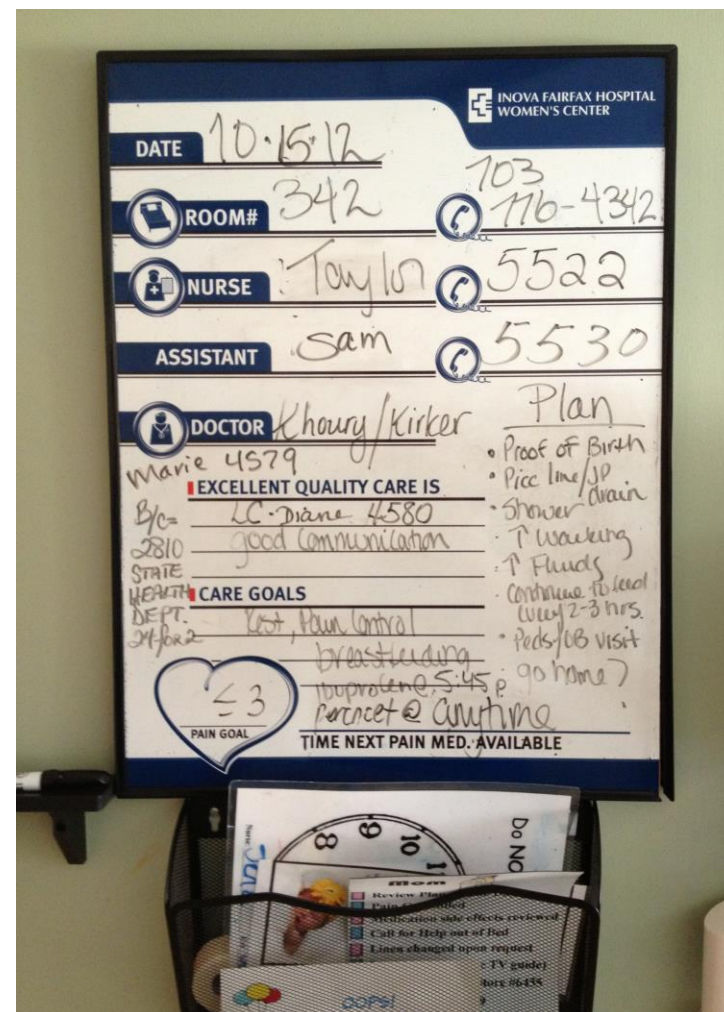 INOVA FAIRFAX HOSPITAL
WOMEN'S CENTER
DATE 10.15.12
ROOM# 342
703
776-4342
NURSE Taylor 5522
ASSISTANT Sam 5530
DOCTOR Khoury/Kirker
Marie 4579
EXCELLENT QUALITY CARE IS
LC-Diane 4580
good Communication
B/c=
2810
STATE
HEALTH
DEPT.
24 for 2
CARE GOALS
Rest, Pain Control
breastfeeding
ibuprofen @ 5:45 p
percocet @ anytime
≤3
PAIN GOAL
TIME NEXT PAIN MED. AVAILABLE
Plan
• Proof of Birth
• Picc line/JP
drain
• Shower
• ↑ Walking
• ↑ Fluids
• Continue to feed
every 2-3 hrs.
• Peds/OB visit
go home?
8
9
10
Do NO
Nurse:
mom
Review
Medication side effects reviewed
Call for Help out of Bed
Linen changed upon request
TV guide)
#6455
OOPS!